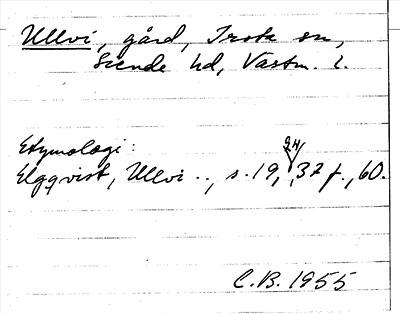 Ullvi, gård, Irsta sn,
Siende hd, Västm. l.
Etymologi:
Elgqvist, Ullvi .., s. 19, 24, 37 f., 60.
C.B. 1955